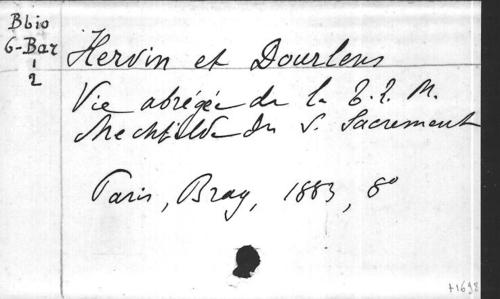 Bbio
G-Bar
1
2
Hervin et Dourlens
Vie abrégée de la T. R. M.
Mechtilde du S. Sacrement
Paris, Bray, 1883, 8°
+1698